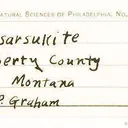 NATURAL SCIENCES OF PHILADELPHIA, NO.
sarsukite
berty County
Montana
P. Graham